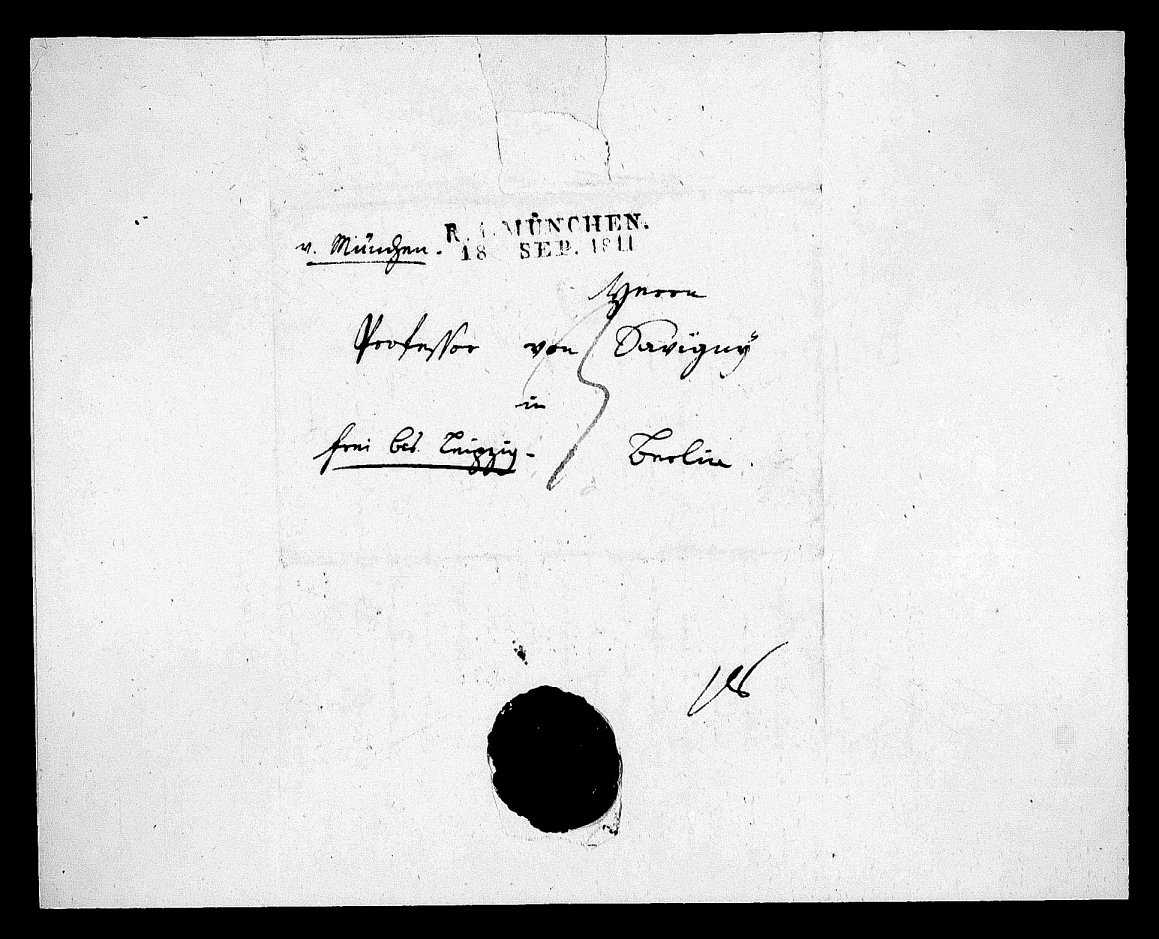 R. 4. MÜNCHEN.
v. München. 18 SEP. 1811
Herrn
Professor von Savigny
in
frei bis Leipzig. Berlin.